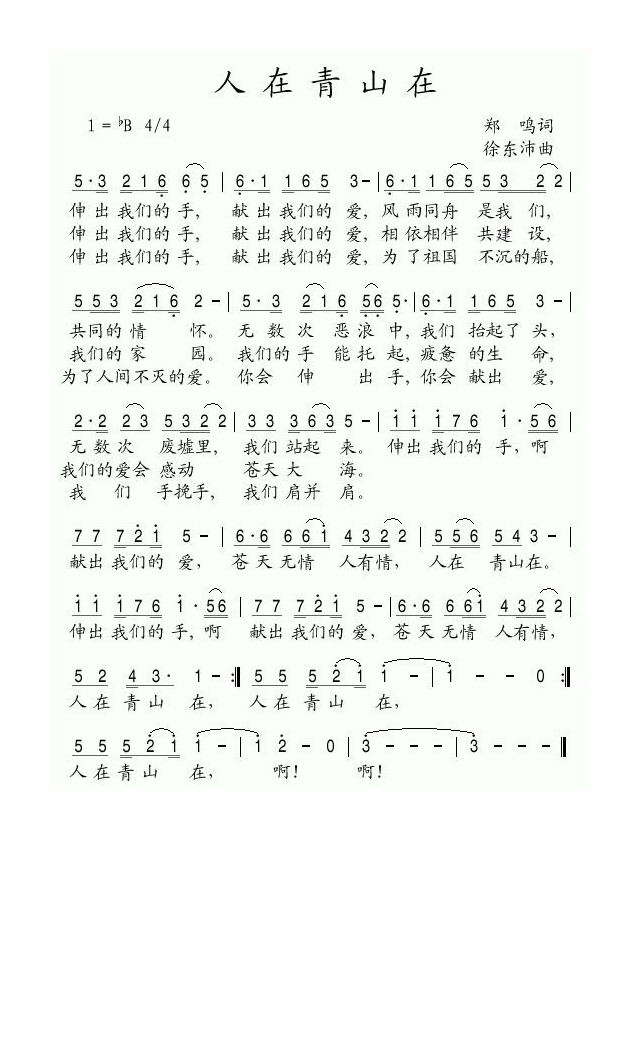 人在青山在
1 = ♭B 4/4 郑 鸣词
徐东沛曲
5·3 2 1 6 6·5 | 6·1 1 6 5 3 - | 6·1 1 6 5 5 3 2 2 |
伸出我们的手, 献出我们的爱, 风雨同舟 是我们,
伸出我们的手, 献出我们的爱, 相依相伴 共建设,
伸出我们的手, 献出我们的爱, 为了祖国 不沉的船,
5 5 3 2 1 6 2 - | 5·3 2 1 6 5 6 5· | 6·1 1 6 5 3 - |
共同的情 怀。 无数次 恶浪中, 我们 抬起了头,
我们的家 园。 我们的手 能托起, 疲惫的生命,
为了人间不灭的爱。 你会 伸 出手, 你会献出 爱,
2·2 2 3 5 3 2 2 | 3 3 3 6 3 5 - | 1 1 1 7 6 1·5 6 |
无数次 废墟里, 我们站起 来。 伸出我们的手, 啊
我们的爱会 感动 苍天大 海。
我 们 手挽手, 我们肩并 肩。
7 7 7 2 1 5 - | 6·6 6 6 1 4 3 2 2 | 5 5 6 5 4 3 - |
献出我们的爱, 苍天无情 人有情, 人在 青山在。
1 1 1 7 6 1·5 6 | 7 7 7 2 1 5 - | 6·6 6 6 1 4 3 2 2 |
伸出我们的手, 啊 献出我们的爱, 苍天无情 人有情,
5 2 4 3· 1 - :‖ 5 5 5 2 1 1 - | 1 - - 0 :‖
人在青山 在, 人在青山 在,
5 5 5 2 1 1 - - | 1 2 - 0 | 3 - - - | 3 - - - ‖
人在青山 在, 啊! 啊!